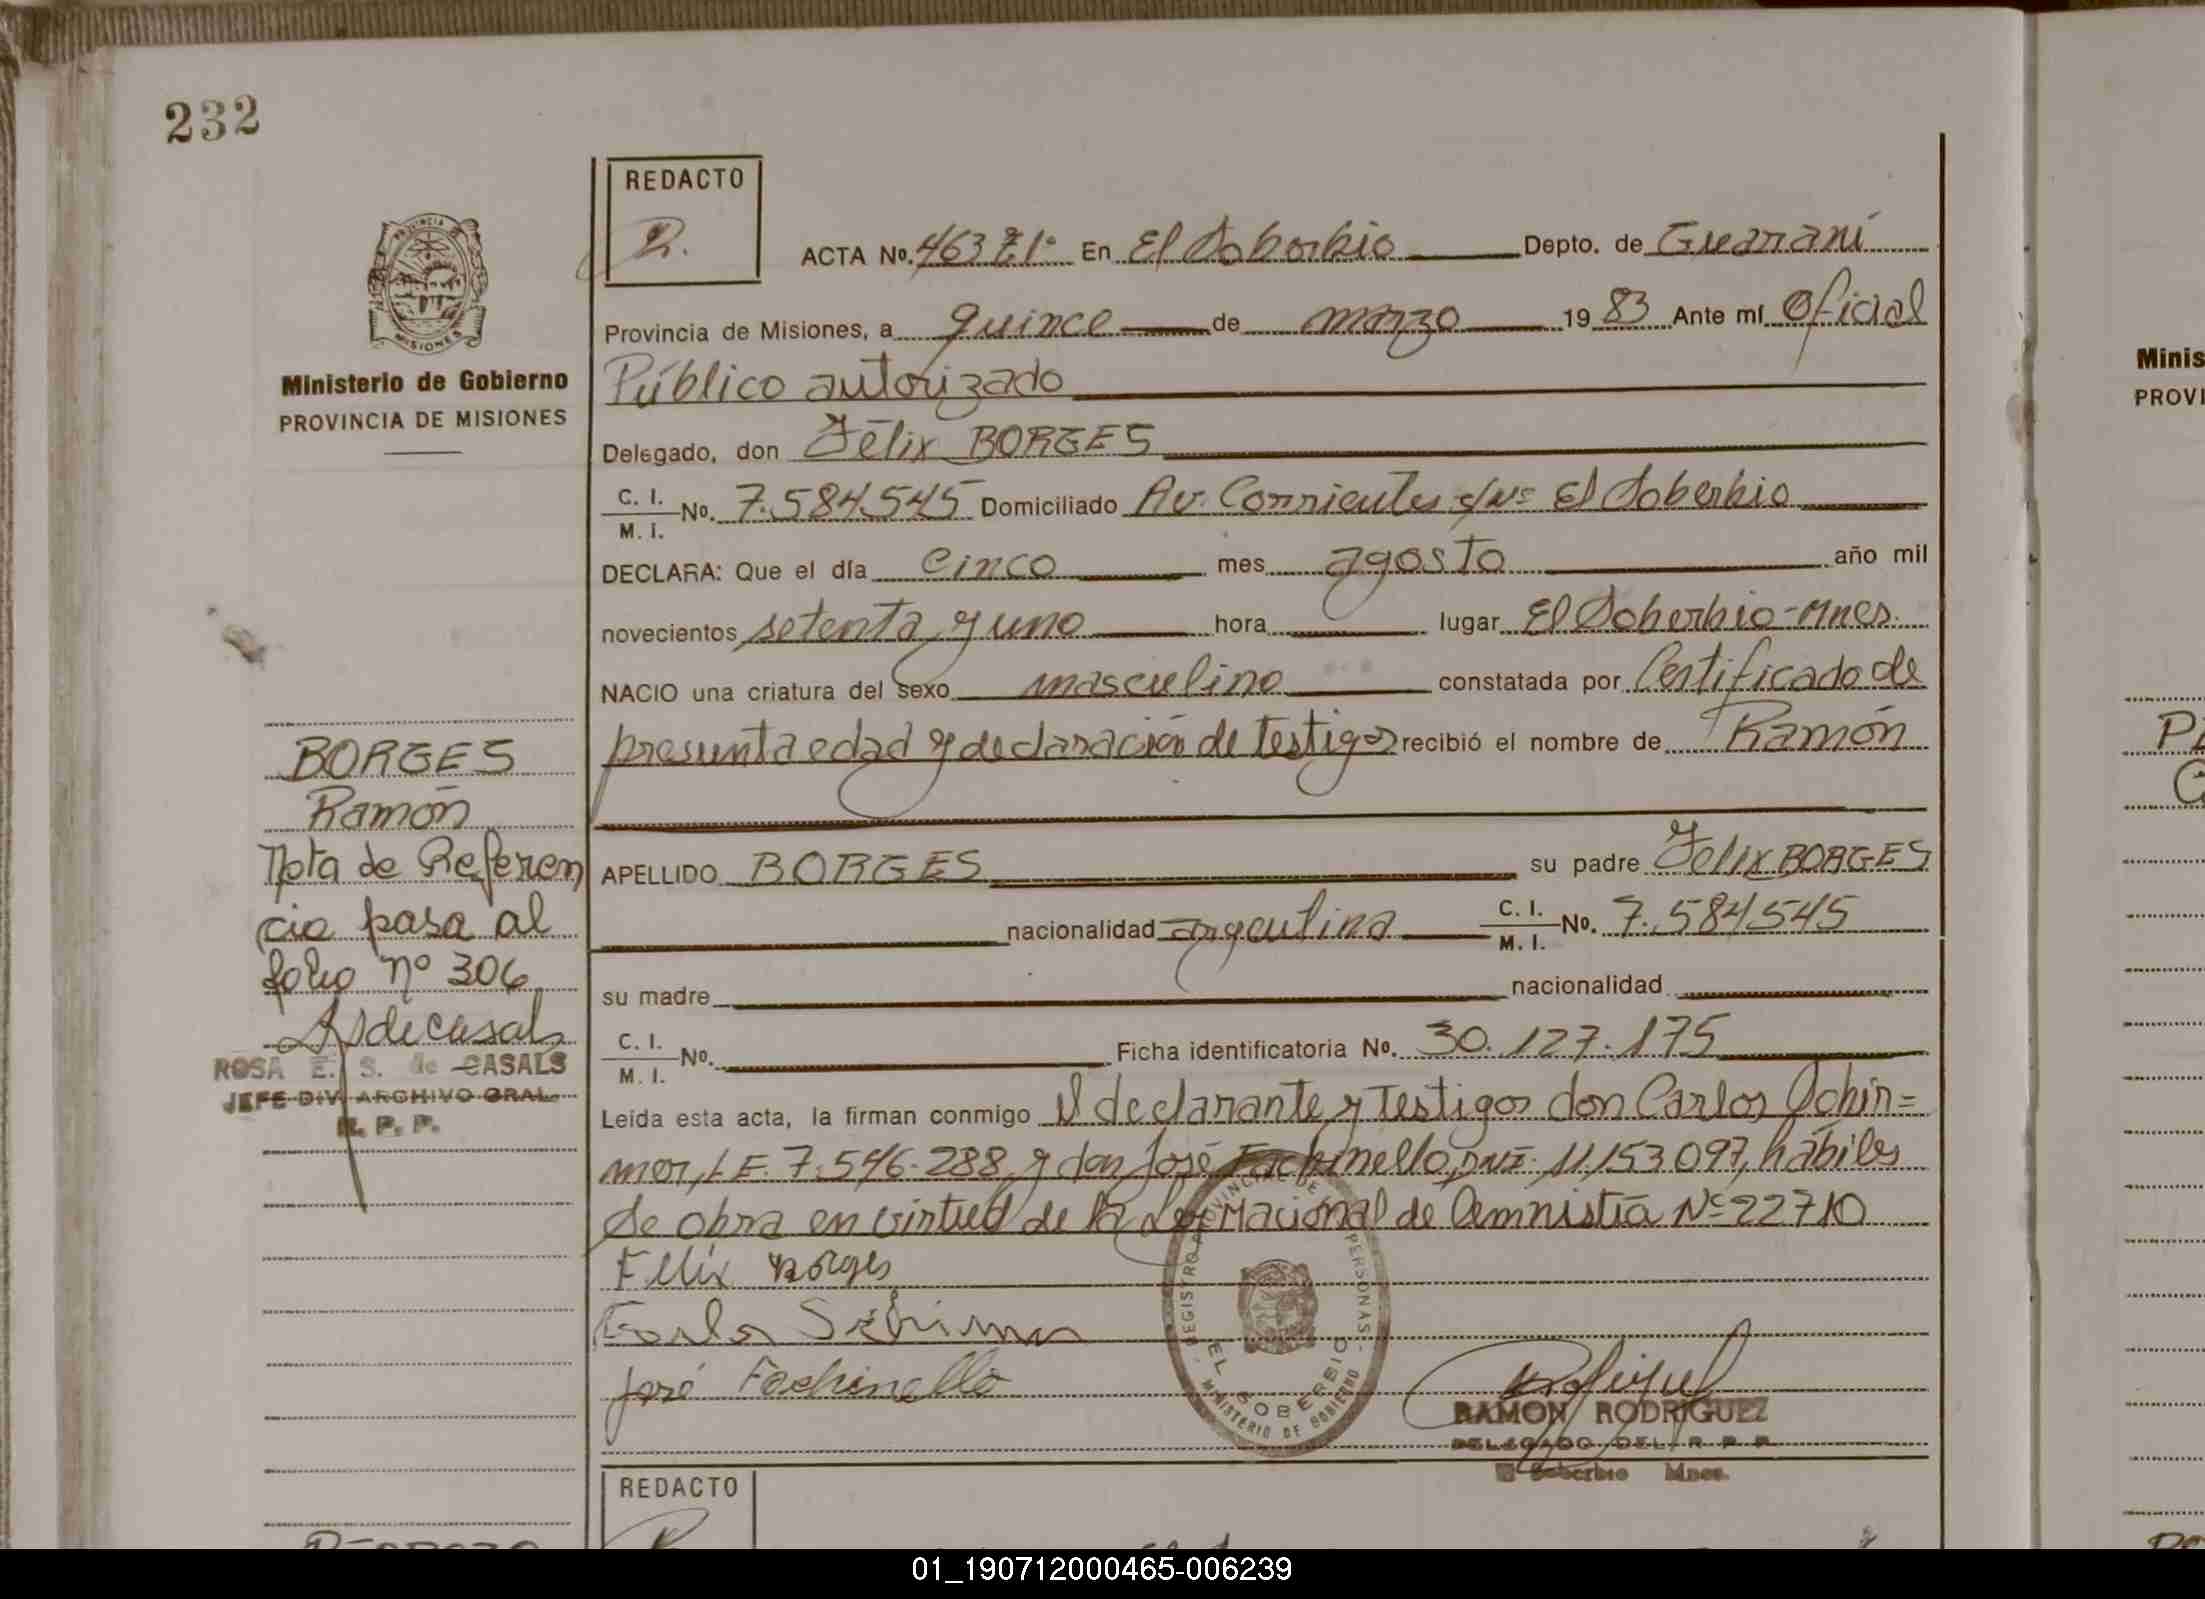 232
REDACTO
R.
PROVINCIA
MISIONES
Ministerio de Gobierno
PROVINCIA DE MISIONES
ACTA No. 463 En El Soberbio Depto. de Guaraní
Provincia de Misiones, a quince de marzo 1983 Ante mí Oficial
Público autorizado
Delegado, don Félix BORGES
C. I. M. I. No. 7.584.545 Domiciliado Av. Corrientes s/Nº El Soberbio
DECLARA: Que el día cinco mes agosto año mil
novecientos setenta y uno hora lugar El Soberbio-Mnes.
NACIO una criatura del sexo masculino constatada por Certificado de
presunta edad y declaración de testigos recibió el nombre de Ramón
APELLIDO BORGES su padre Félix BORGES
nacionalidad argentina C. I. M. I. No. 7.584545
su madre nacionalidad
C. I. M. I. No. Ficha identificatoria No. 30.127.175
Leída esta acta, la firman conmigo el declarante y testigos don Carlos Schir=
mer, L.E. 7.546.288 y don José Fachinello, DNI. 11,153.097, hábiles
Se obra en virtud de la Ley Nacional de Amnistía Nº 22710
Felix Borges
José Fachinello
BORGES
Ramón
Nota de Referen
cia pasa al
folio nº 306
ROSA E. S. de CASALS
JEFE DIV. ARCHIVO GRAL.
R. P. P.
REGISTRO PROVINCIAL DE PERSONAS
EL SOBERBIO
MINISTERIO DE GOBIERNO
RAMON RODRIGUEZ
DELEGADO DEL R P P
El Soberbio Mnes.
REDACTO
Minis
PROVI
01_190712000465-006239